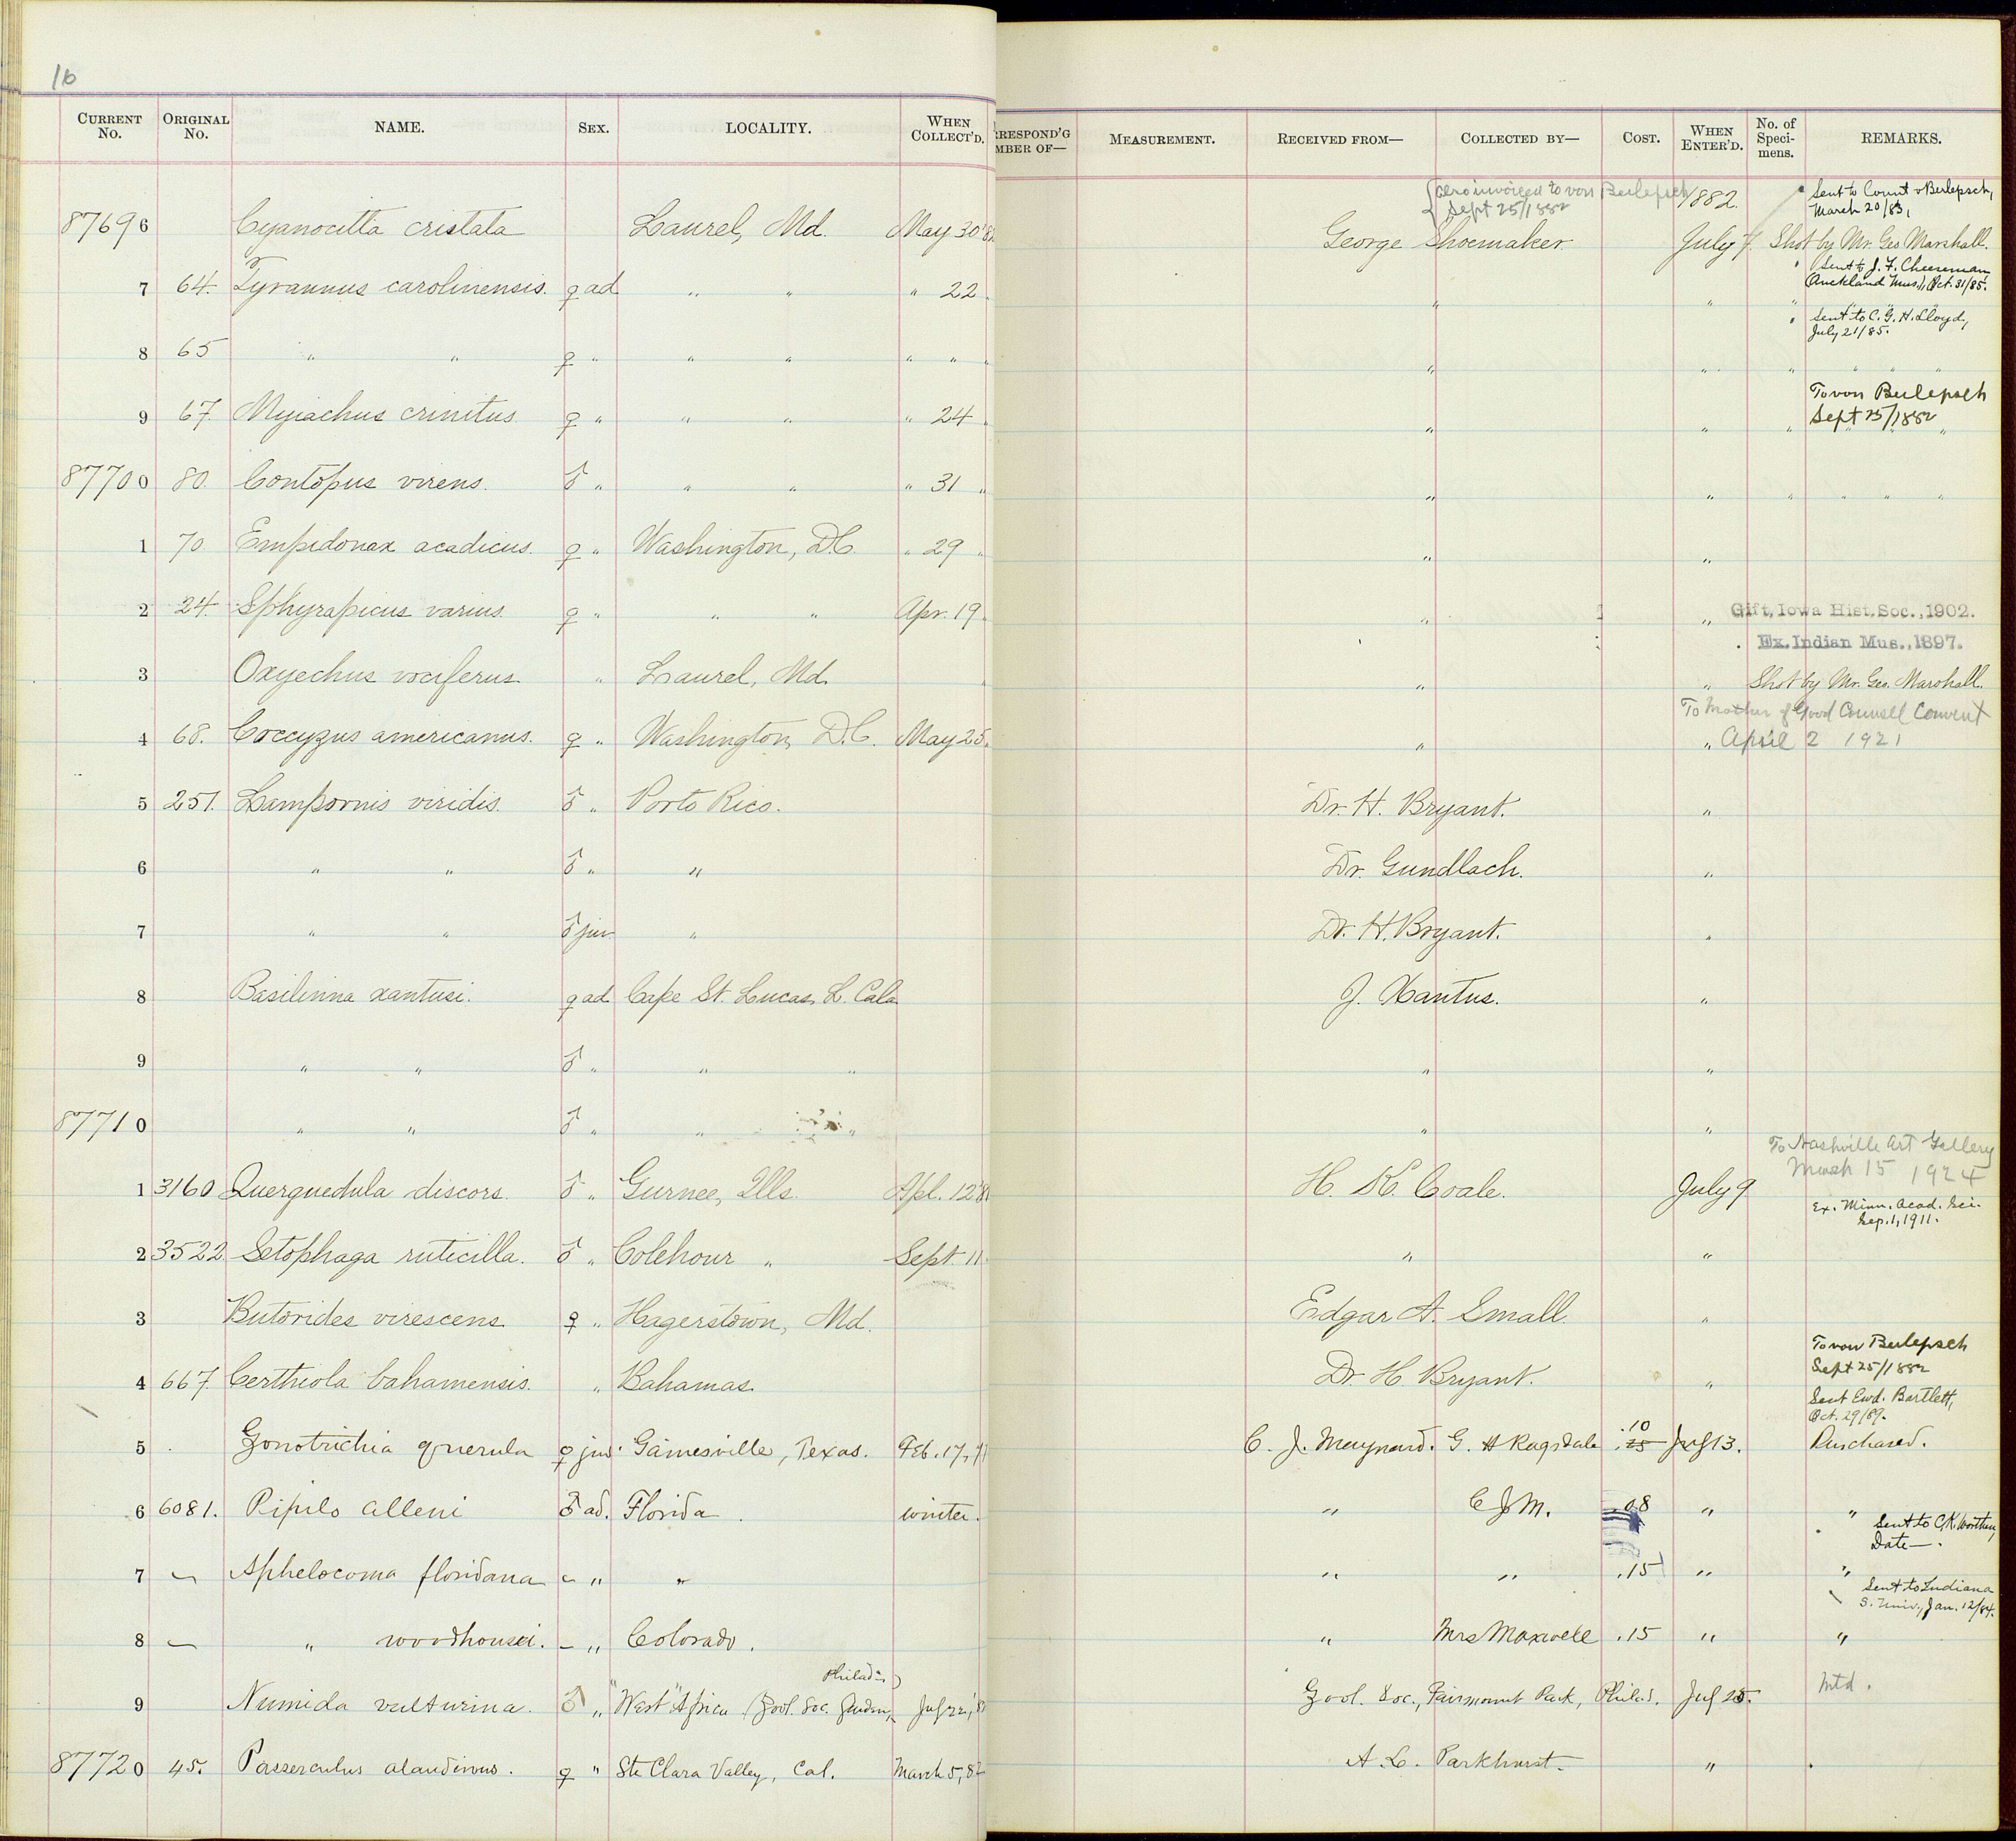 16
CURRENT No. ORIGINAL No. NAME. SEX. LOCALITY. WHEN COLLECT'D.
87696 Cyanocitta cristata Laurel, Md. May 30'82
7 64. Tyrannus carolinensis. ♀ ad " " " 22 "
8 65 " " ♀ " " " " " "
9 67. Myiachus crinitus ♀ " " " " 24 "
87700 80. Contopus virens. ♂ " " " " 31 "
1 70 Empidonax acadicus. ♀ " Washington, D.C. " 29 "
2 24. Sphyrapicus varius. ♀ " " " Apr. 19.
3 Oxyechus vociferus " Laurel, Md. "
4 68. Coccyzus americanus. ♀ " Washington, D.C. May 25.
5 251. Lampornis viridis. ♂ " Porto Rico.
6 " " ♂ " "
7 " " ♂ juv. "
8 Basilinna xantusi. ♀ ad. Cape St. Lucas, L. Cala
9 " " ♂ " " "
87710 " " ♂ " " "
1 3160 Querquedula discors. ♂ " Gurnee, Ills. Apl. 12'8
2 3522. Setophaga ruticilla. ♂ " Colehour " Sept. 11.
3 Butorides virescens ♀ " Hagerstown, Md.
4 667. Certhiola bahamensis. " Bahamas.
5 . Zonotrichia querula ♀ juv. Gainesville, Texas. Feb. 17,
6 6081. Pipilo alleni ♂ ad. Florida. winter.
7 — Aphelocoma floridana – " "
8 — " woodhousei. – " Colorado.
9 Numida vulturina. ♂ " "West" Africa (Zool. Soc. Garden, Philada) July 22,'8
87720 45. Passerculus alaudinus. ♀ " Sta Clara Valley, Cal. March 5, 82
RRESPOND'G MBER OF— MEASUREMENT. RECEIVED FROM— COLLECTED BY— COST. WHEN ENTER'D. No. of Speci-mens. REMARKS.
{ invoiced to von Berlepsch
Sept 25/1882
1882. Sent to Count v Berlepsch,
March 20/83,
George Shoemaker July 7. Shot by Mr. Geo Marshall.
Sent to J. F. Cheeseman
(Auckland Mus.), Oct. 31/85.
" " "
Sent to C. G. H. Lloyd,
July 21/85.
" " " " " "
To von Berlepsch
Sept 25/1882
" " " " " "
" " " " " "
" "
" " Gift, Iowa Hist. Soc., 1902.
Ex. Indian Mus., 1897.
" " Shot by Mr. Geo. Marshall.
To Mother of Good Counsell Convent
" " April 2 1921
Dr. H. Bryant. "
Dr. Gundlach. "
Dr. H. Bryant. "
J. Xantus. "
" "
" "
To Nashville Art Gallery
March 15 1924
H. K. Coale. July 9
Ex. Minn. Acad. Sci.
Sep. 1, 1911.
" "
Edgar A. Small. "
To von Berlepsch
Sept 25/1882
Dr. H. Bryant. "
Sent Ewd. Bartlett,
Oct. 29/89.
C. J. Maynard. G. H Ragsdale .10 .25 July 13. Purchased.
" C J M. .08 " "
Sent to C. K. Worthen,
Date—.
" " .15 " "
Sent to Indiana
S. Univ., Jan. 12/84.
" Mrs Maxwell .15 " "
Zool. Soc., Fairmount Park, Philad. July 25. Mtd.
A. L. Parkhurst. " .